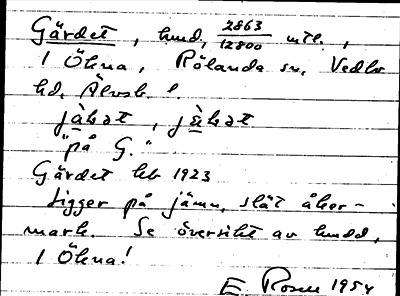 Gärdet, hmd, 2863/12800 mtl.,
1 Ökna, Rölanda sn, Vedbo
hd, Älvsb. l.
"på G."
Gärdet leb 1923
Ligger på jämn, slät åker-
mark. Se översikt av hmd,
1 Ökna!
E Rosen 1954